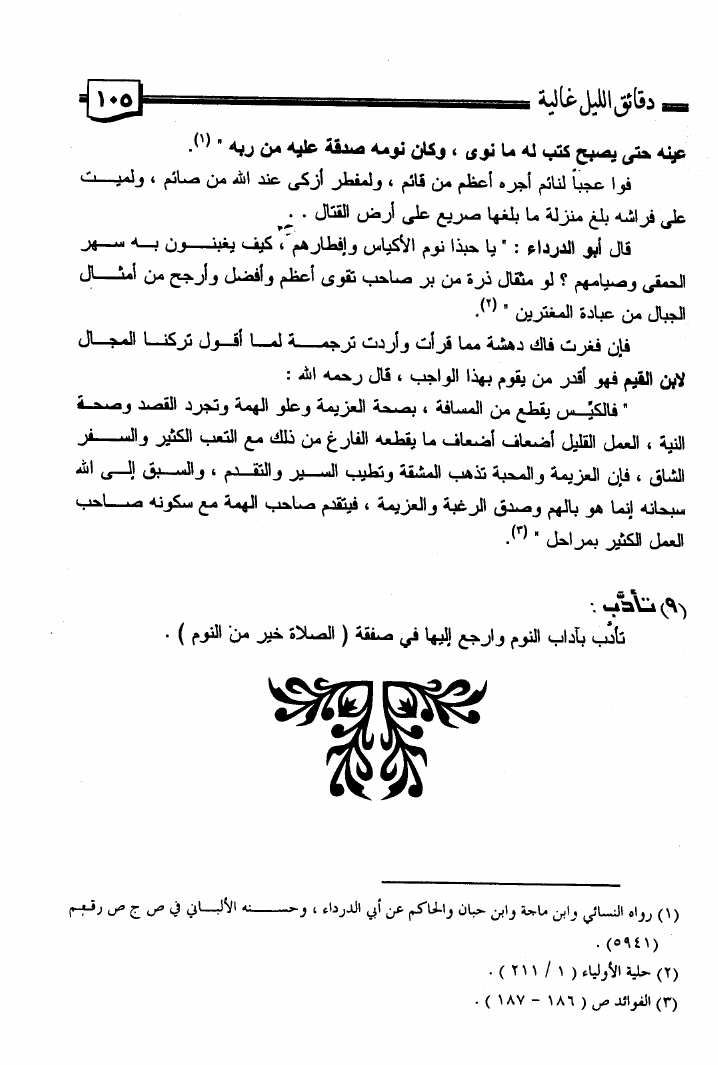 دقائق الليل غالية
١٠٥
عينه حتى يصبح كتب له ما نوى ، وكان نومه صدقة عليه من ربه " (١).
فوا عجباً لنائم أجره أعظم من قائم ، ولمفطر أزكى عند الله من صائم ، ولميت
على فراشه بلغ منزلة ما بلغها صريع على أرض القتال . .
قال أبو الدرداء : " يا حبذا نوم الأكياس وإفطارهم ، كيف يغبنون به سهر
الحمقى وصيامهم ؟ لو مثقال ذرة من بر صاحب تقوى أعظم وأفضل وأرجح من أمثال
الجبال من عبادة المغترين " (٢).
فإن فغرت فاك دهشة مما قرأت وأردت ترجمة لما أقول تركنا المجال
لابن القيم فهو أقدر من يقوم بهذا الواجب ، قال رحمه الله :
" فالكيِّس يقطع من المسافة ، بصحة العزيمة وعلو الهمة وتجرد القصد وصحة
النية ، العمل القليل أضعاف أضعاف ما يقطعه الفارغ من ذلك مع التعب الكثير والسفر
الشاق ، فإن العزيمة والمحبة تذهب المشقة وتطيب السير والتقدم ، والسبق إلى الله
سبحانه إنما هو بالهم وصدق الرغبة والعزيمة ، فيتقدم صاحب الهمة مع سكونه صاحب
العمل الكثير بمراحل " (٣).
(٩) تأدَّب :
تأدَّب بآداب النوم وارجع إليها في صفقة ( الصلاة خير من النوم ) .
(١) رواه النسائي وابن ماجة وابن حبان والحاكم عن أبي الدرداء ، وحسنه الألباني في ص ج ص رقم
(٥٩٤١) .
(٢) حلية الأولياء ( ١ / ٢١١ ) .
(٣) الفوائد ص ( ١٨٦ - ١٨٧ ) .